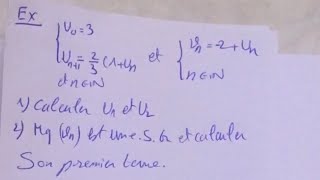 Ex
U₀ = 3
Uₙ₊₁ = 2/3 (1 + Uₙ et vₙ = -2 + Uₙ
∀n∈N n∈N
1) Calculer U₁ et U₂
2) Mq (vₙ) est une S. G et calculer
Son premier terme.